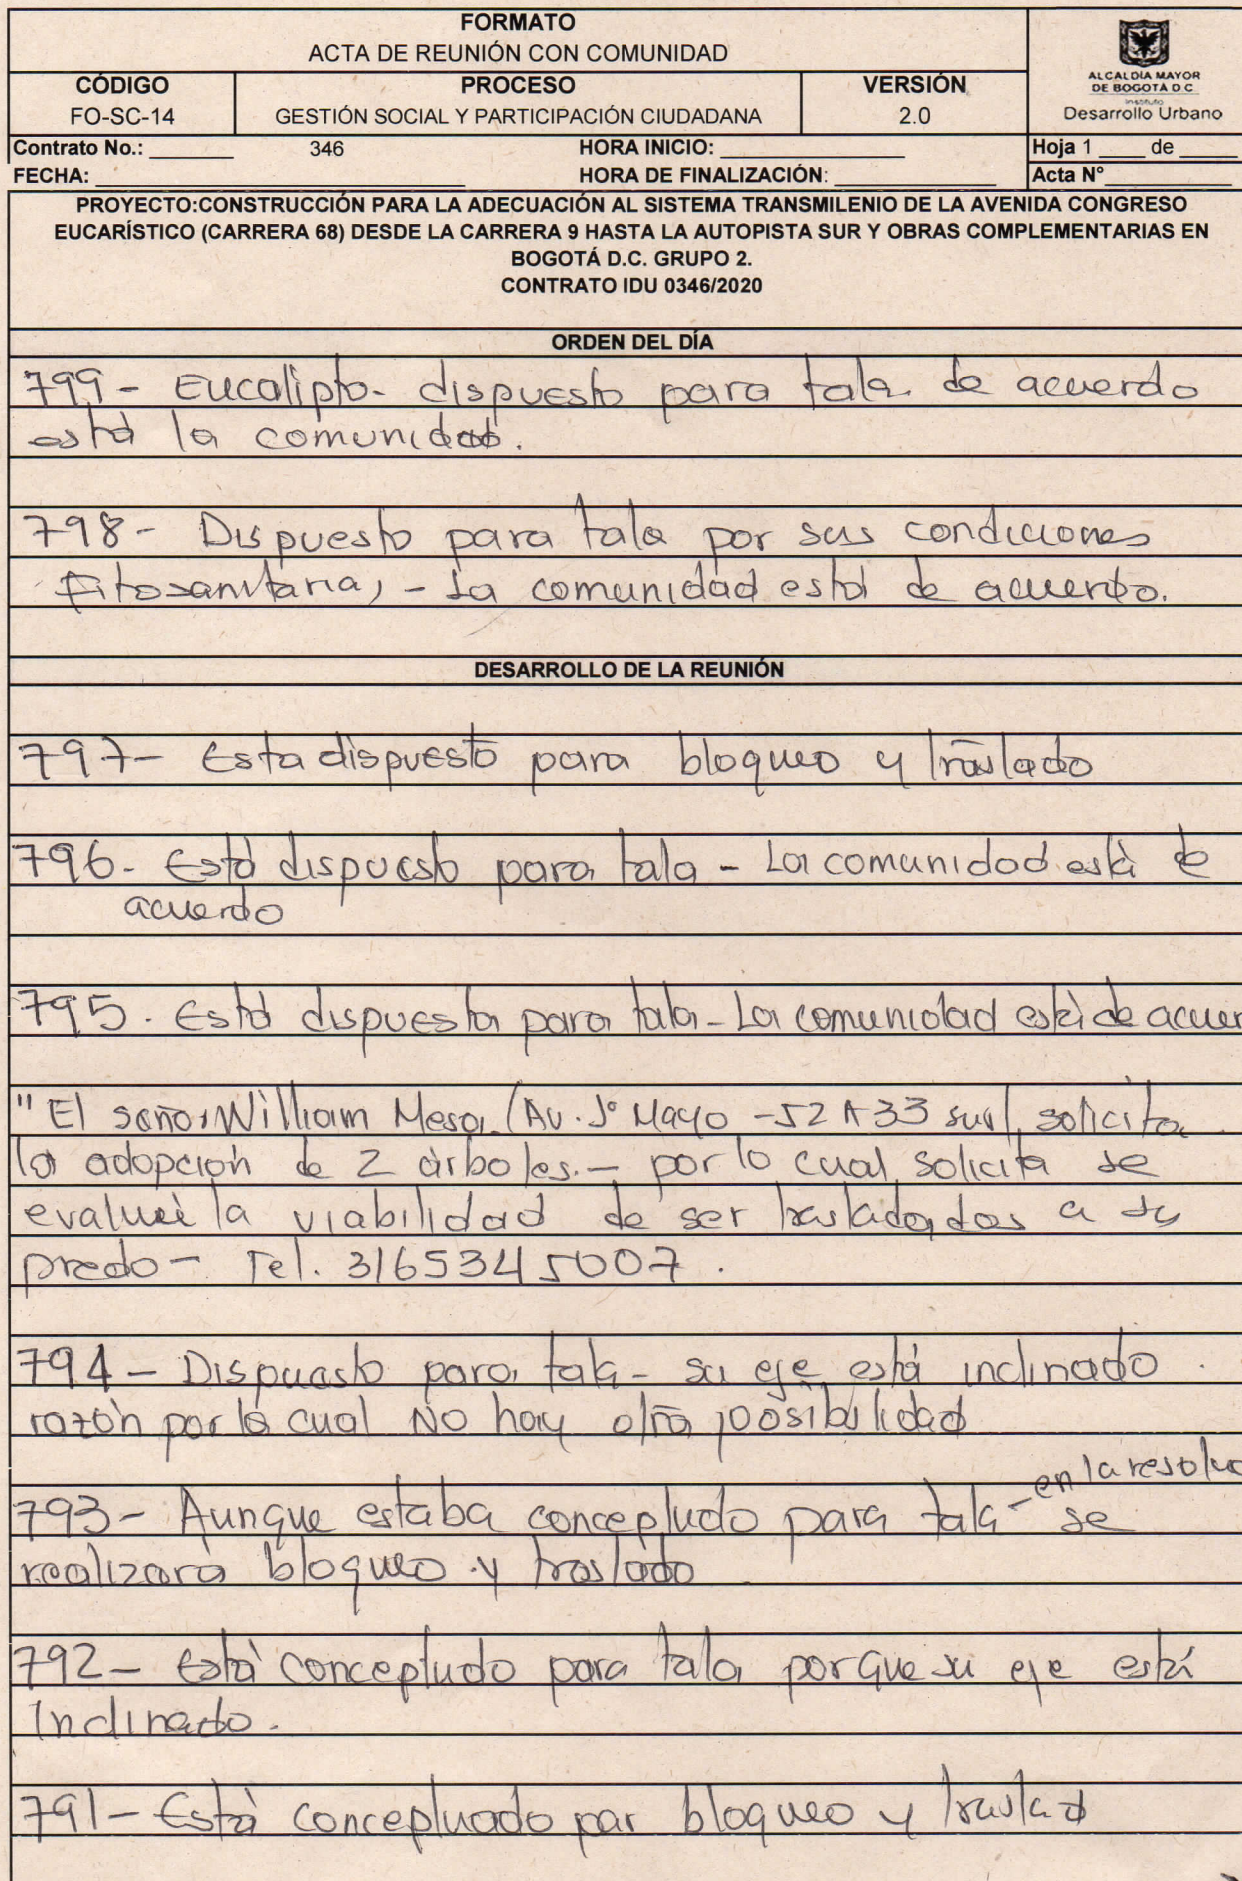 FORMATO
ACTA DE REUNIÓN CON COMUNIDAD
CÓDIGO
FO-SC-14
PROCESO
GESTIÓN SOCIAL Y PARTICIPACIÓN CIUDADANA
VERSIÓN
2.0
ALCALDIA MAYOR
DE BOGOTA D C
Instituto
Desarrollo Urbano
Contrato No.: 346 HORA INICIO:
Hoja 1 de
FECHA: HORA DE FINALIZACIÓN:
Acta N°
PROYECTO:CONSTRUCCIÓN PARA LA ADECUACIÓN AL SISTEMA TRANSMILENIO DE LA AVENIDA CONGRESO
EUCARÍSTICO (CARRERA 68) DESDE LA CARRERA 9 HASTA LA AUTOPISTA SUR Y OBRAS COMPLEMENTARIAS EN
BOGOTÁ D.C. GRUPO 2.
CONTRATO IDU 0346/2020
ORDEN DEL DÍA
799- Eucalipto- dispuesto para tala de acuerdo
está la comunidad.
798- Dispuesto para tala por sus condiciones
fitosanitarias - La comunidad está de acuerdo.
DESARROLLO DE LA REUNIÓN
797- Esta dispuesto para bloqueo y traslado
796- Está dispuesto para tala - La comunidad está de
acuerdo
795. Está dispuesta para tala - La comunidad está de acuer
"El señor William Mesa. (Av. 1° Mayo -52 A 33 sur) solicita
la adopción de 2 árboles. - por lo cual solicita se
evalueé la viabilidad de ser trasladados a su
predo - Tel. 3165345007.
794 - Dispuesto para tala - su eje está inclinado.
razón por lo cual NO hay otra posibilidad
en la resoluc
793- Aunque estaba conceptudo para tala - se
realizará bloqueo y traslado
792- Está conceptudo para tala porque su eje está
Inclinado.
791- Está conceptuado par bloqueo y traslad